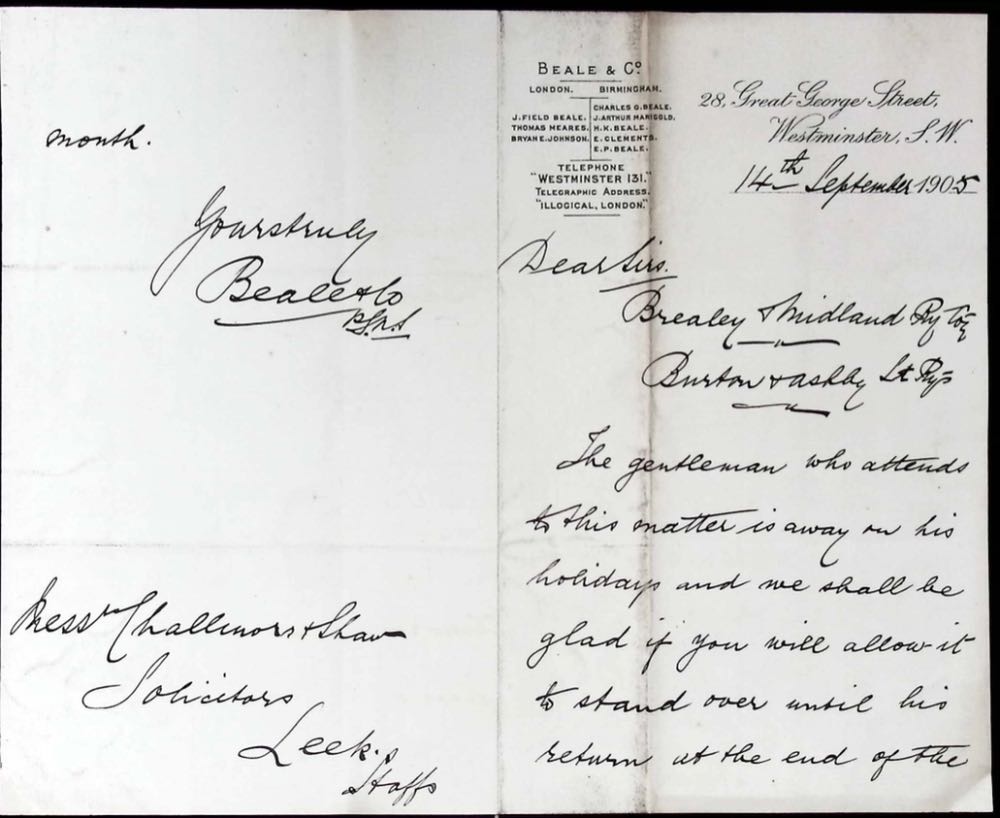 BEALE & Cº
LONDON. BIRMINGHAM.
J. FIELD BEALE. THOMAS MEARES. BRYAN E. JOHNSON.
CHARLES G. BEALE. J. ARTHUR MARIGOLD. H. K. BEALE. E. CLEMENTS. E. P. BEALE.
TELEPHONE
"WESTMINSTER 131."
TELEGRAPHIC ADDRESS.
"ILLOGICAL, LONDON."
28, Great George Street,
Westminster, S.W.
14th September 1905
Dear Sirs.
Brealey & Midland Ry Coy
Burton & Ashby Lt Rys
The gentleman who attends
to this matter is away on his
holidays and we shall be
glad if you will allow it
to stand over until his
return at the end of the
month.
Yours truly
Beale & Co
Messrs Challinors & Shaw
Solicitors
Leek.
Staffs